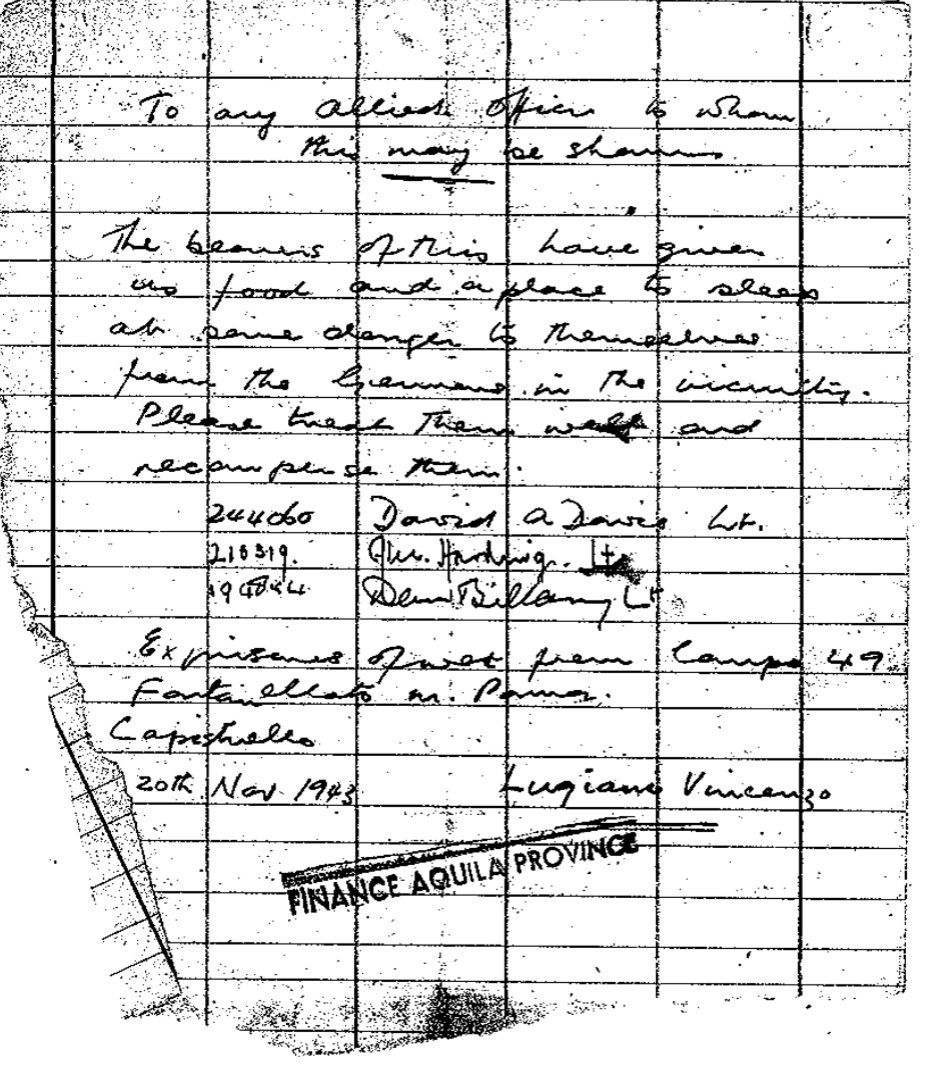 To any Allied Officer to whom
this may be shown
The bearers of this have given
us food and a place to sleep
at some danger to themselves
from the Germans in the vicinity.
Please treat them well and
recompense them.
244060 David A Davis Lt.
Harding. Lt
Bellamy Lt
Ex prisoners of war from Campo 49
Fontanellato nr. Parma.
Capistrello
20th Nov 1943 Lugiano Vincenzo
FINANCE AQUILA PROVINCE